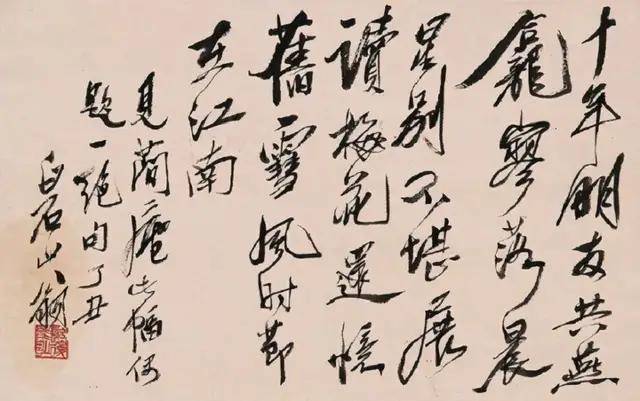 十年朋友共燕
龕寥落晨
星别不堪展
讀梅花還憶
舊雪風时節
在江南
見簡庵此幅偶
題一絕句丁丑
白石山翁